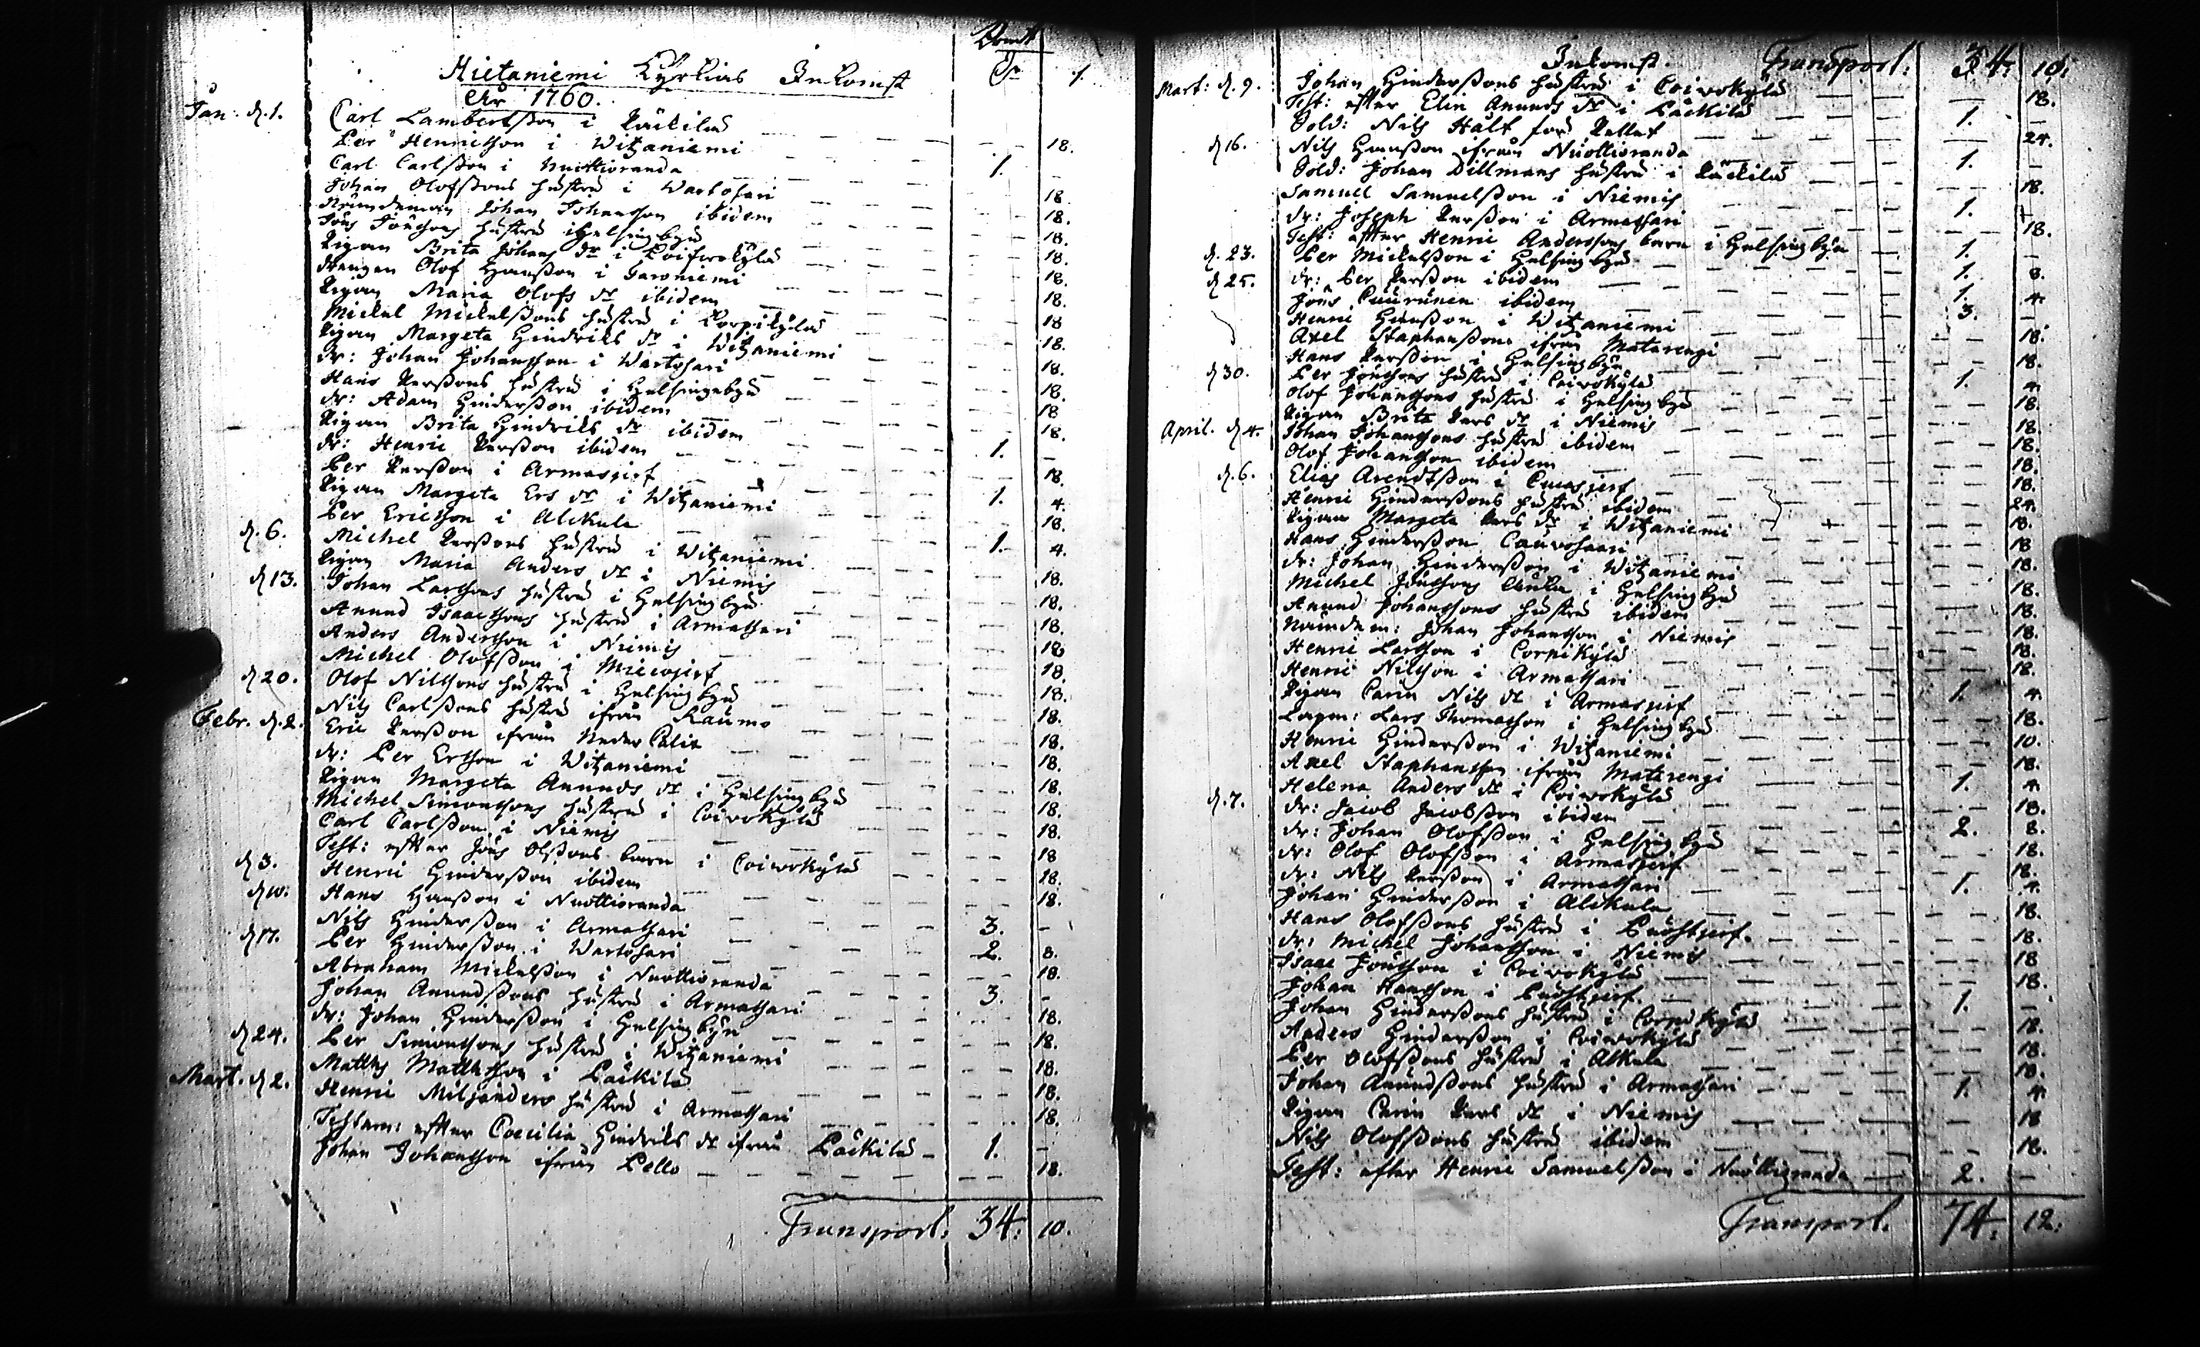 Domt
Hietaniemi Kyrkias Inkomst
År 1760.
Jan: d. 1. Carl Lambertsson i Päckilä — 18.
Per Henricsson i Witzaniemi — 1. —
Carl Carlsson i Nuottioranda — 18.
Johan Olofssons hustru i Wartosari — 18.
Nämndeman Johan Johansson ibidem — 18.
Jöns Jönssons hustru i Helsingbyn — 18.
Pigan Brita Johans dr i Koifwokylä — 18.
Drengen Olof Hansson i Taroniemi — 18.
Pigan Maria Olofs dr ibidem — 18.
Mickel Mickelssons hustru i Korpikylä — 18.
Pigan Margeta Hindriks dr i Witzaniemi
dr: Johan Johansson i Wartosari — 18.
Hans Perssons hustru i Helsingebyn — 18.
dr: Adam Hindersson ibidem — 18.
Pigan Brita Hindriks dr ibidem — 18.
dr: Henric Persson ibidem — 1. —
Per Persson i Armasjerf — 18.
Pigan Margeta Ers dr i Witzaniemi — 1. 4.
Per Ericsson i Alckula — 18.
d. 6. Michel Perssons hustru i Witzaniemi — 1. 4.
Pigan Maria Anders dr i Niemis — 18.
d 13. Johan Larssons hustru i Helsingbyn — 18.
Anund Isaacssons hustru i Armassari — 18.
Anders Andersson i Niemis — 18
Michel Olofsson i Miecojerf — 18.
d 20. Olof Nilssons hustru i Helsingbyn — 18.
Nils Carlssons hustru ifrån Raumo — 18.
Febr. d. 2. Eric Persson ifrån Neder Calix — 18.
dr: Per Ersson i Witzaniemi — 18.
Pigan Margeta Anunds dr i Helsingbyn — 18.
Michel Simonssons hustru i Coivokylä — 18.
Carl Carlsson i Niemis — 18.
Test: efter Jöns Olssons barn i Coivokylä — 18
d 3. Henric Hindersson ibidem — 18.
d 10. Hans Hansson i Nuottioranda — 18.
Nils Hindersson i Armassari — 3. —
d 17. Per Hindersson i Wartosari — 2. 8.
Abraham Mickelsson i Nuottioranda — 18.
Johan Anundssons hustru i Armassari — 3. —
dr: Johan Hindersson i Helsingbyn — 18.
d 24. Per Simonssons hustru i Witzaniemi — 18.
Matths Matthsson i Päckilä — 18.
Mart. d 2. Henric Miljanders hustru i Armassari — 18.
Testam: efter Coecilia Hindriks dr ifrån Päckilä — 1. —
Johan Johansson ifrån Pello — 18.
Transport: 34. 10.
Inkomst. Transport: 34. 10.
Mart: d. 9. Johan Hinderssons hustru i Coivokylä — 18.
Test: efter Elin Anunds dr i Päckilä — 1. —
Sold: Nils Hält — 24.
d 16. Nils Hansson ifrån Nuottioranda — 1. —
Sold: Johan Dillmans hustru i Päckilä — 18.
Samuel Samuelsson i Niemis — 1. 4
dr: Joseph Persson i Armassari — 18.
Test: efter Henric Anderssons barn i Helsingbyn — 1. —
d. 23. Per Mickelsson i Helsingbyn — 1. 8.
d 25. dr: Per Persson ibidem — 1. 4.
Jöns Puurunen ibidem — 3. —
Henric Hansson i Witzaniemi — 18.
Axel Staphansson ifrån Matarengi — 18.
Hans Persson i Helsingbyn — 1. 4.
d 30. Per Jönssons hustru i Coivokylä — 18.
Olof Johanssons hustru i Helsingbyn — 18.
Pigan Brita Pers dr i Niemis — 18.
April. d 4. Johan Johanssons hustru ibidem — 18.
Olof Johansson ibidem — 18.
d. 6. Elias Arendtsson i — 24.
Henric Hinderssons hustru ibidem — 18.
Pigan Margeta Lars dr i Witzaniemi — 18
Hans Hindersson Cauvosaari — 18.
dr: Johan Hindersson i Witzaniemi — 18.
Michel Jönssons Enka i Helsingbyn — 18.
Anund Johanssons hustru ibidem — 18.
Nämndem: Johan Johansson i Niemis — 18.
Henric Larsson i Corpikylä — 18.
Henric Nilsson i Armassari — 1. 4.
Pigan Carin Nils dr i Armasjerf — 18.
Lagm: Lars Thomasson i Helsingbyn — 10.
Henric Hindersson i Witzaniemi — 18.
Axel Staphansson ifrån Matarengi — 1. 4.
Helena Anders dr i Coivokylä — 18.
d. 7. dr: Jacob Jacobsson ibidem — 2. 8.
dr: Johan Olofsson i Helsingbyn — 18.
dr: Olof Olofsson i Armasjerf — 18.
dr: Nils Persson i Armassari — 1. 4.
Johan Hindersson i Alckula — 18.
Hans Olofssons hustru i Puostjerf. — 18.
dr: Michel Johansson i Niemis — 18
Isaac Jönsson i Coivokylä — 18.
Johan Hansson i Puostjerf. — 1. —
Johan Hinderssons hustru i Corpikylä — 18.
Anders Hindersson i Coivokylä — 18.
Per Olofssons hustru i Alkula — 18.
Johan Anundssons hustru i Armassari — 1. 4.
Pigan Carin Pers dr i Niemis — 18
Nils Olofssons hustru ibidem — 18.
Test: efter Henric Samuelsson i Nuottioranda — 2. —
Transport. 74. 12.